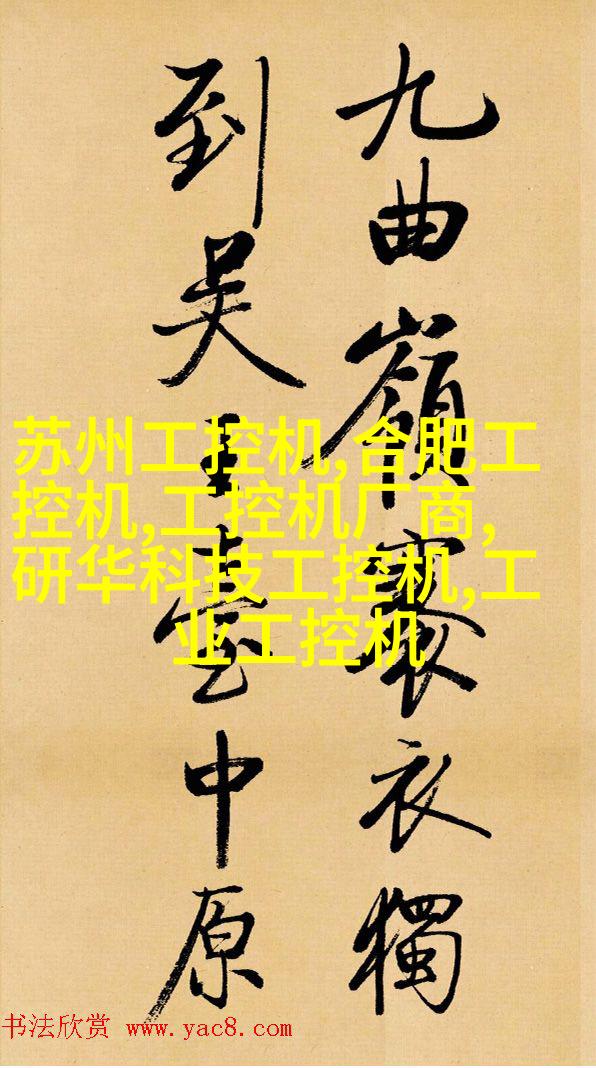 九曲嶺褰衣獨
到吴王臺中原
苏州工控机,合肥工
控机,工控机厂商,
研华科技工控机,工
业工控机
书法欣赏 www.yac8.com